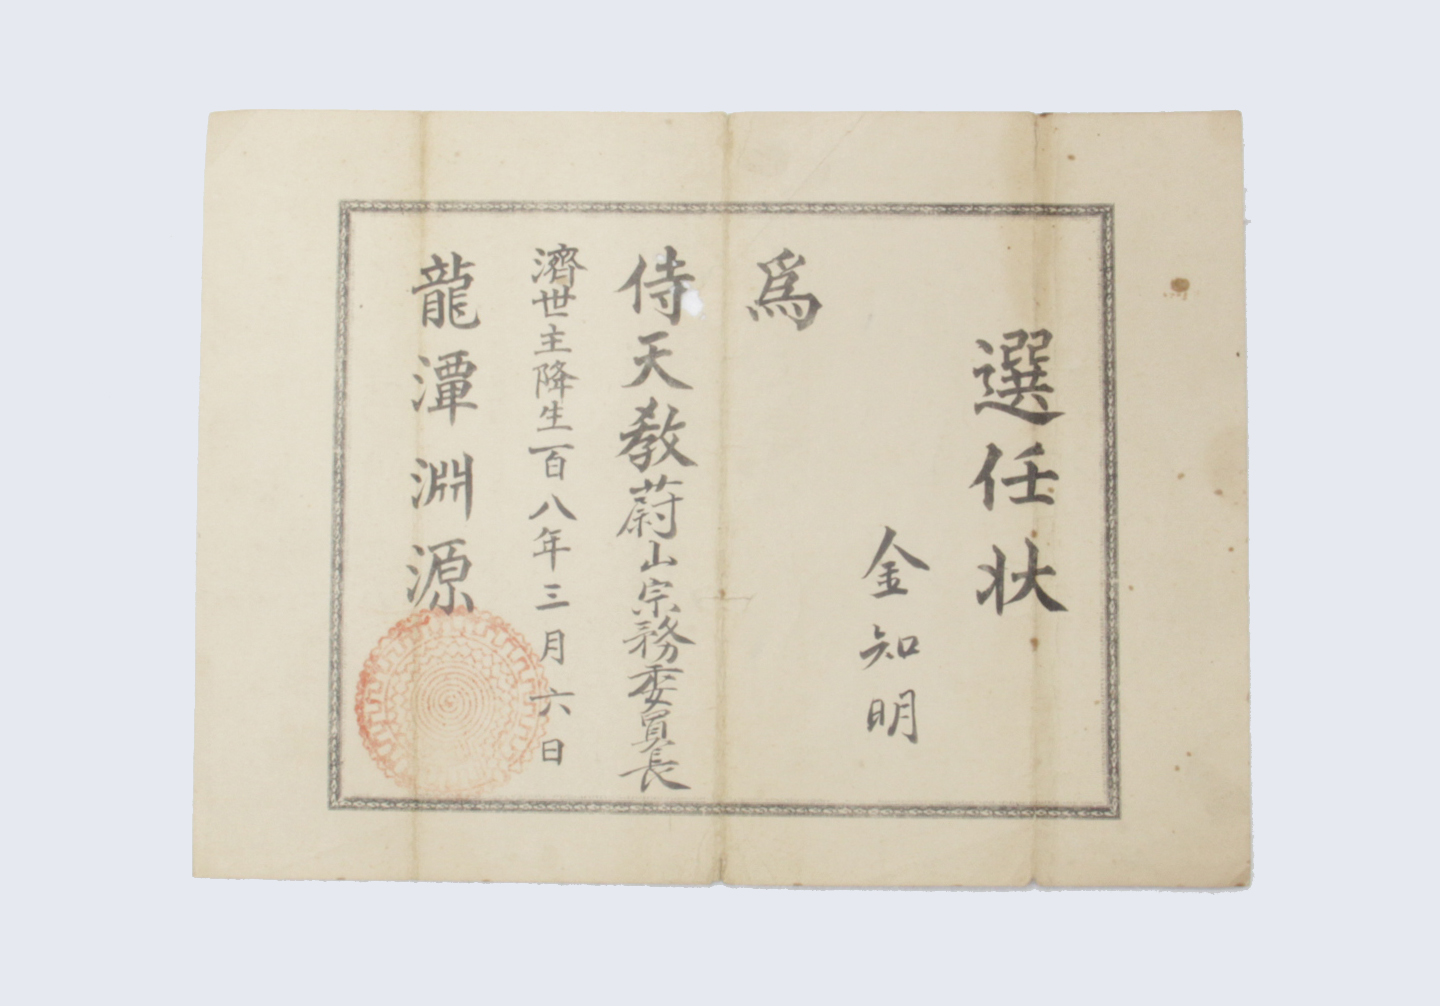 選任狀
金知明
爲
侍天敎蔚山宗務委員長
濟世主降生一百八年三月六日
龍潭淵源